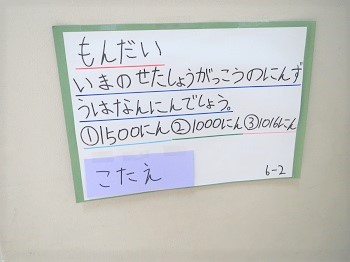 もんだい
いまのせたしょうがっこうのにんず
うはなんにんでしょう。
①1500にん②1000にん③1016にん
こたえ
6-2